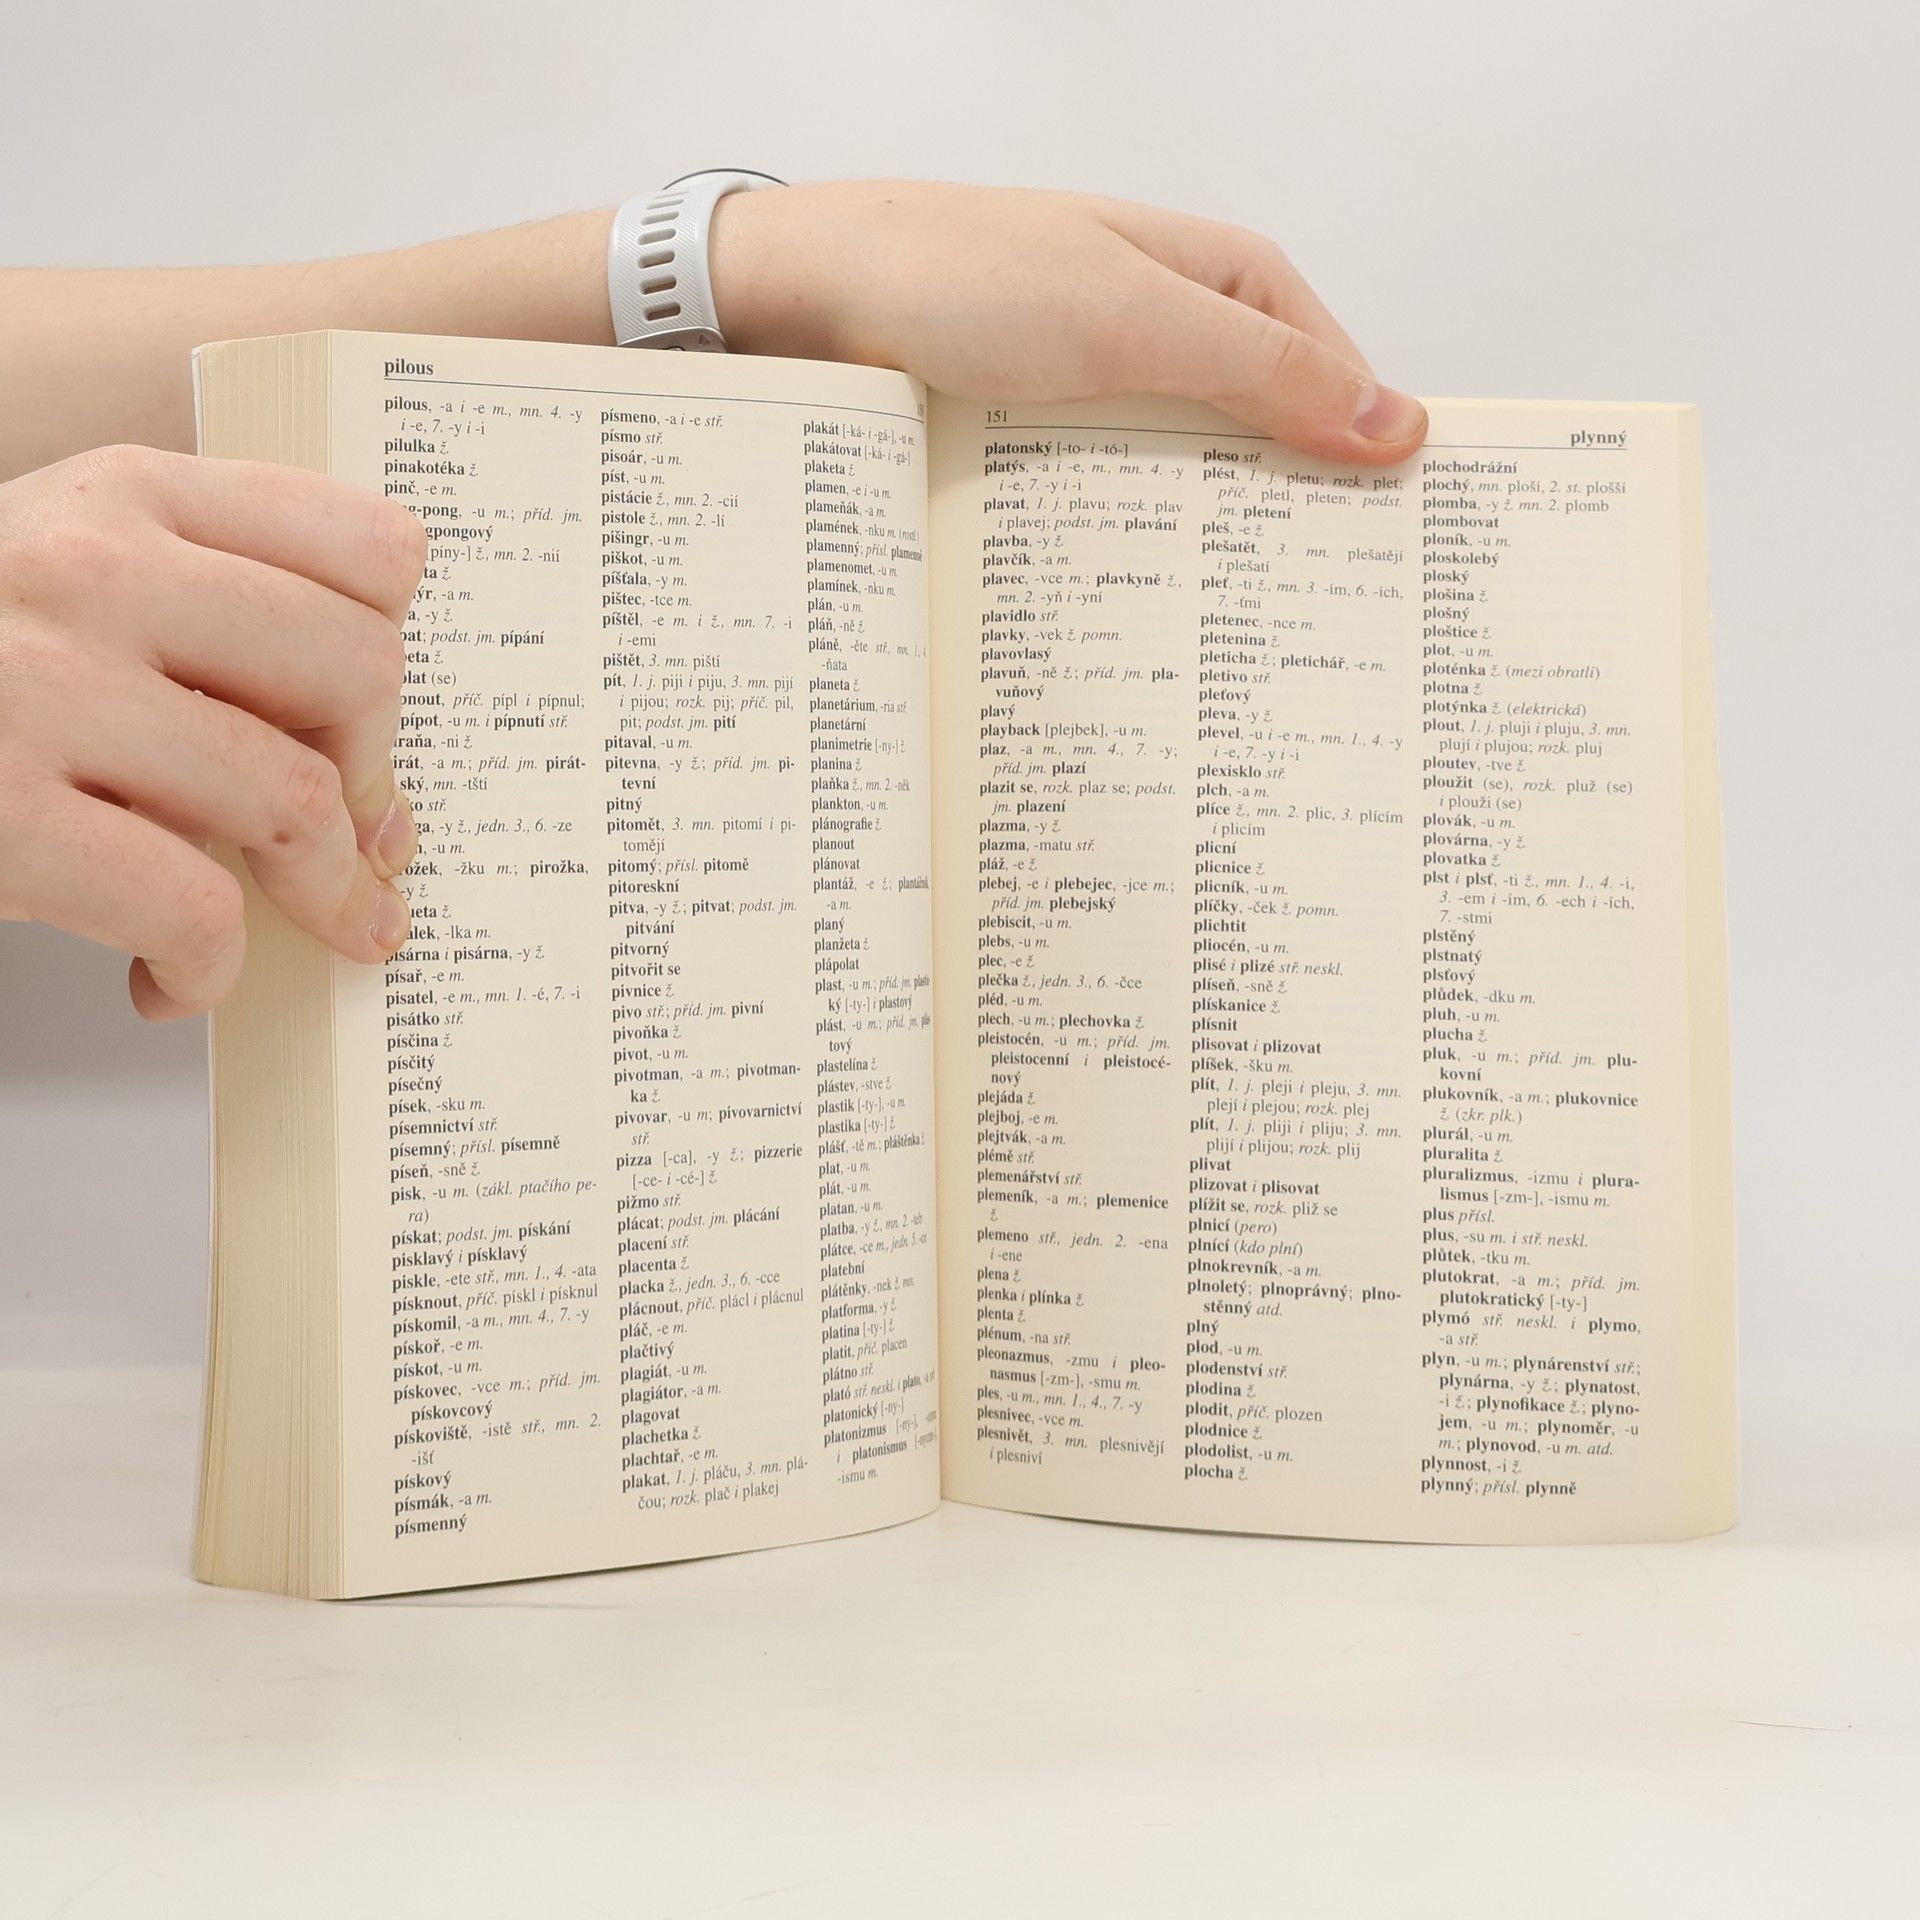 pilous
pilous, -a i -e m., mn. 4. -y
i -e, 7. -y i -i
pilulka ž.
pinakotéka ž.
pinč, -e m.
-pong, -u m.; příd. jm.
gpongový
[píny-] ž., mn. 2. -nií
-a m.
-y ž.
podst. jm. pípání
(se)
příč. pípl i pípnul;
pípot, -u m. i pípnutí stř.
-ni ž.
-a m.; příd. jm. pirát-
ský, mn. -tští
stř.
-y ž., jedn. 3., 6. -ze
-u m.
-žku m.; pirožka,
-y ž.
ž.
-lka m.
písárna i pisárna, -y ž.
písař, -e m.
pisatel, -e m., mn. 1. -é, 7. -i
pisátko stř.
písčina ž.
písčitý
písečný
písek, -sku m.
písemnictví stř.
písemný; přísl. písemně
píseň, -sně ž.
pisk, -u m. (zákl. ptačího pe-
ra)
pískat; podst. jm. pískání
pisklavý i písklavý
piskle, -ete stř., mn. 1., 4. -ata
písknout, příč. pískl i písknul
pískomil, -a m., mn. 4., 7. -y
pískoř, -e m.
pískot, -u m.
pískovec, -vce m.; příd. jm.
pískovcový
pískoviště, -istě stř., mn. 2.
-išť
pískový
písmák, -a m.
písmenný
písmeno, -a i -e stř.
písmo stř.
pisoár, -u m.
píst, -u m.
pistácie ž., mn. 2. -cií
pistole ž., mn. 2. -lí
pišingr, -u m.
piškot, -u m.
píšťala, -y m.
pištec, -tce m.
píštěl, -e m. i ž., mn. 7. -i
i -emi
pištět, 3. mn. piští
pít, 1. j. piji i piju, 3. mn. pijí
i pijou; rozk. pij; příč. pil,
pit; podst. jm. pití
pitaval, -u m.
pitevna, -y ž.; příd. jm. pi-
tevní
pitný
pitomět, 3. mn. pitomí i pi-
tomějí
pitomý; přísl. pitomě
pitoreskní
pitva, -y ž.; pitvat; podst. jm.
pitvání
pitvorný
pitvořit se
pivnice ž.
pivo stř.; příd. jm. pivní
pivoňka ž.
pivot, -u m.
pivotman, -a m.; pivotman-
ka ž.
pivovar, -u m; pivovarnictví
stř.
pizza [-ca], -y ž.; pizzerie
[-ce- i -cé-] ž.
pižmo stř.
plácat; podst. jm. plácání
placení stř.
placenta ž.
placka ž., jedn. 3., 6. -cce
plácnout, příč. plácl i plácnul
pláč, -e m.
plačtivý
plagiát, -u m.
plagiátor, -a m.
plagovat
plachetka ž.
plachtař, -e m.
plakat, 1. j. pláču, 3. mn. plá-
čou; rozk. plač i plakej
plakát [-ká- i -gá-], -u m.
plakátovat [-ká- i -gá-]
plaketa ž.
plamen, -e i -u m.
plameňák, -a m.
plamének, -nku m. (rostl.)
plamenný; přísl. plamenně
plamenomet, -u m.
plamínek, -nku m.
plán, -u m.
pláň, -ně ž.
pláně, -ěte stř., mn. 1., 4.
-ňata
planeta ž.
planetárium, -ria stř.
planetární
planimetrie [-ny-] ž.
planina ž.
plaňka ž., mn. 2. -něk
plankton, -u m.
plánografie ž.
planout
plánovat
plantáž, -e ž.; plantážník
-a m.
planý
planžeta ž.
plápolat
plast, -u m.; příd. jm. plastic-
ký [-ty-] i plastový
plást, -u m.; příd. jm. plás-
tový
plastelína ž.
plástev, -stve ž.
plastik [-ty-], -u m.
plastika [-ty-] ž.
plášť, -tě m.; pláštěnka ž.
plat, -u m.
plát, -u m.
platan, -u m.
platba, -y ž., mn. 2. -teb
plátce, -ce m., jedn. 5. -ce
platební
plátěnky, -nek ž. mn.
platforma, -y ž.
platina [-ty-] ž.
platit, příč. placen
plátno stř.
plató stř. neskl. i plato, -a stř.
platonický [-ny-]
platonizmus [-ny-], -izmu
i platonismus [-nyzm-],
-ismu m.
151
plynný
platonský [-to- i -tó-]
platýs, -a i -e, m., mn. 4. -y
i -e, 7. -y i -i
plavat, 1. j. plavu; rozk. plav
i plavej; podst. jm. plavání
plavba, -y ž.
plavčík, -a m.
plavec, -vce m.; plavkyně ž.,
mn. 2. -yň i -yní
plavidlo stř.
plavky, -vek ž. pomn.
plavovlasý
plavuň, -ně ž.; příd. jm. pla-
vuňový
plavý
playback [plejbek], -u m.
plaz, -a m., mn. 4., 7. -y;
příd. jm. plazí
plazit se, rozk. plaz se; podst.
jm. plazení
plazma, -y ž.
plazma, -matu stř.
pláž, -e ž.
plebej, -e i plebejec, -jce m.;
příd. jm. plebejský
plebiscit, -u m.
plebs, -u m.
plec, -e ž.
plečka ž., jedn. 3., 6. -čce
pléd, -u m.
plech, -u m.; plechovka ž.
pleistocén, -u m.; příd. jm.
pleistocenní i pleistocé-
nový
plejáda ž.
plejboj, -e m.
plejtvák, -a m.
plémě stř.
plemenářství stř.
plemeník, -a m.; plemenice
ž.
plemeno stř., jedn. 2. -ena
i -ene
plena ž.
plenka i plínka ž.
plenta ž.
plénum, -na stř.
pleonazmus, -zmu i pleo-
nasmus [-zm-], -smu m.
ples, -u m., mn. 1., 4., 7. -y
plesnivec, -vce m.
plesnivět, 3. mn. plesnivějí
i plesniví
pleso stř.
plést, 1. j. pletu; rozk. pleť;
příč. pletl, pleten; podst.
jm. pletení
pleš, -e ž.
plešatět, 3. mn. plešatějí
i plešatí
pleť, -ti ž., mn. 3. -ím, 6. -ích,
7. -ťmi
pletenec, -nce m.
pletenina ž.
pleticha ž.; pletichář, -e m.
pletivo stř.
pleťový
pleva, -y ž.
plevel, -u i -e m., mn. 1., 4. -y
i -e, 7. -y i -i
plexisklo stř.
plch, -a m.
plíce ž., mn. 2. plic, 3. plícím
i plicím
plicní
plicnice ž.
plicník, -u m.
plíčky, -ček ž. pomn.
plichtit
pliocén, -u m.
plisé i plizé stř. neskl.
plíseň, -sně ž.
plískanice ž.
plísnit
plisovat i plizovat
plíšek, -šku m.
plít, 1. j. pleji i pleju, 3. mn.
plejí i plejou; rozk. plej
plít, 1. j. pliji i pliju; 3. mn.
plijí i plijou; rozk. plij
plivat
plizovat i plisovat
plížit se, rozk. pliž se
plnicí (pero)
plnící (kdo plní)
plnokrevník, -a m.
plnoletý; plnoprávný; plno-
stěnný atd.
plný
plod, -u m.
plodenství stř.
plodina ž.
plodit, příč. plozen
plodnice ž.
plodolist, -u m.
plocha ž.
plochodrážní
plochý, mn. ploší, 2. st. plošší
plomba, -y ž. mn. 2. plomb
plombovat
ploník, -u m.
ploskolebý
ploský
plošina ž.
plošný
ploštice ž.
plot, -u m.
ploténka ž. (mezi obratli)
plotna ž.
plotýnka ž. (elektrická)
plout, 1. j. pluji i pluju, 3. mn.
plují i plujou; rozk. pluj
ploutev, -tve ž.
ploužit (se), rozk. pluž (se)
i plouži (se)
plovák, -u m.
plovárna, -y ž.
plovatka ž.
plst i plsť, -ti ž., mn. 1., 4. -i,
3. -em i -ím, 6. -ech i -ích,
7. -stmi
plstěný
plstnatý
plsťový
plůdek, -dku m.
pluh, -u m.
plucha ž.
pluk, -u m.; příd. jm. plu-
kovní
plukovník, -a m.; plukovnice
ž. (zkr. plk.)
plurál, -u m.
pluralita ž.
pluralizmus, -izmu i plura-
lismus [-zm-], -ismu m.
plus přísl.
plus, -su m. i stř. neskl.
plůtek, -tku m.
plutokrat, -a m.; příd. jm.
plutokratický [-ty-]
plymó stř. neskl. i plymo,
-a stř.
plyn, -u m.; plynárenství stř.;
plynárna, -y ž.; plynatost,
-i ž.; plynofikace ž.; plyno-
jem, -u m.; plynoměr, -u
m.; plynovod, -u m. atd.
plynnost, -i ž.
plynný; přísl. plynně